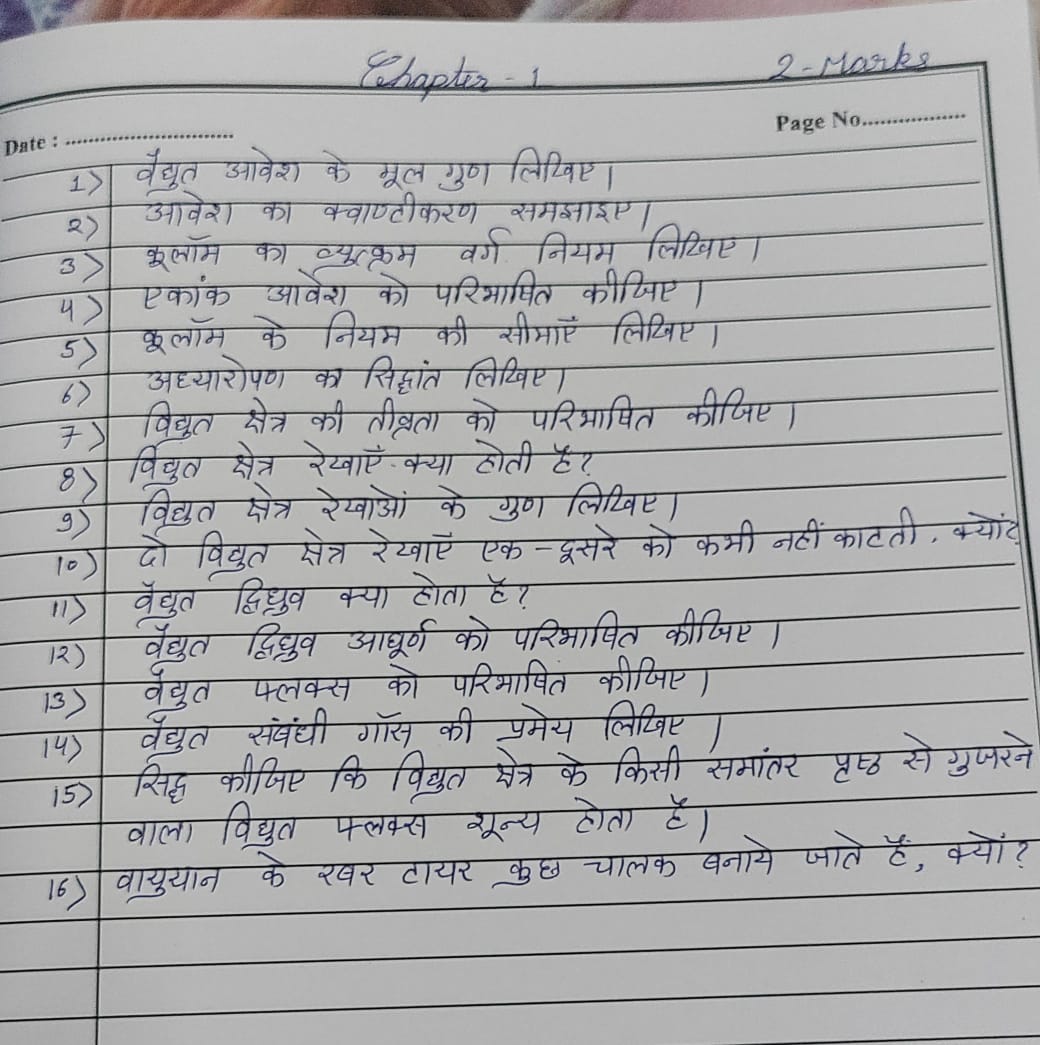 Chapter - 1 2-Marks
Date : Page No.
1) वैद्युत आवेश के मूल गुण लिखिए।
2) आवेश का क्वाण्टीकरण समझाइए।
3) कूलॉम का व्युत्क्रम वर्ग नियम लिखिए।
4) एकांक आवेश को परिभाषित कीजिए।
5) कूलॉम के नियम की सीमाएँ लिखिए।
6) अध्यारोपण का सिद्धांत लिखिए।
7) विद्युत क्षेत्र की तीव्रता को परिभाषित कीजिए।
8) विद्युत क्षेत्र रेखाएँ क्या होती है?
9) विद्युत क्षेत्र रेखाओं के गुण लिखिए।
10) दो विद्युत क्षेत्र रेखाएँ एक-दूसरे को कभी नहीं काटती, क्यों?
11) वैद्युत द्विध्रुव क्या होता है?
12) वैद्युत द्विध्रुव आघूर्ण को परिभाषित कीजिए।
13) वैद्युत फ्लक्स को परिभाषित कीजिए।
14) वैद्युत संबंधी गॉस की प्रमेय लिखिए।
15) सिद्ध कीजिए कि विद्युत क्षेत्र के किसी समांतर पृष्ठ से गुजरने
वाला विद्युत फ्लक्स शून्य होता है।
16) वायुयान के रबर टायर कुछ चालक बनाये जाते हैं, क्यों?